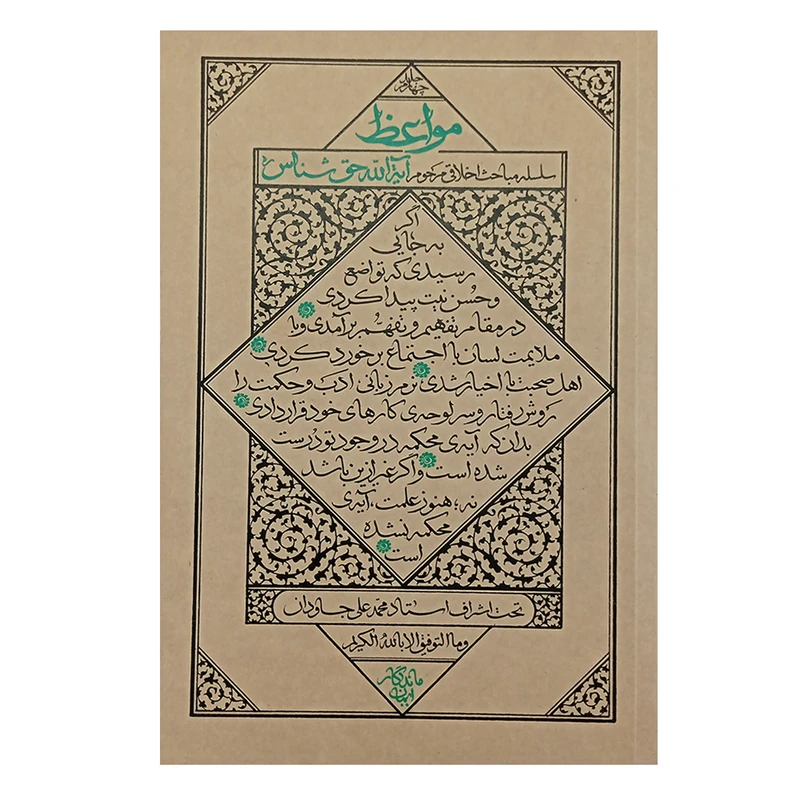 جلد
چهارم
مواعظ
سلسله مباحث اخلاقی مرحوم آیة الله حق شناس ره
اگر
به جایی
رسیدی که تواضع
و حُسن نیت پیدا کردی
در مقام تفهیم و تفهم برآمدی و با
ملایمت لسان با اجتماع برخورد کردی
اهل صحبت با اخیار شدی نرم زبانی ادب و حکمت را
روش رفتار و سرلوحه‌ی کارهای خود قرار دادی
بدان که آیه‌ی محکمه در وجود تو درست
شده است و اگر غیر از این باشد
نه؛ هنوز علمت، آیه‌ی
محکمه نشده
است
تحت اشراف استاد محمد علی جاودان
وما التوفیق الا بالله الکریم
ماندگار